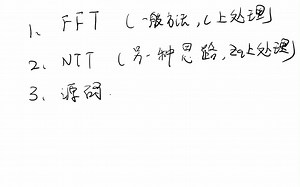 1、FFT（一般方法，C上处理）
2、NTT（另一种思路，Zq上处理）
3、源码.